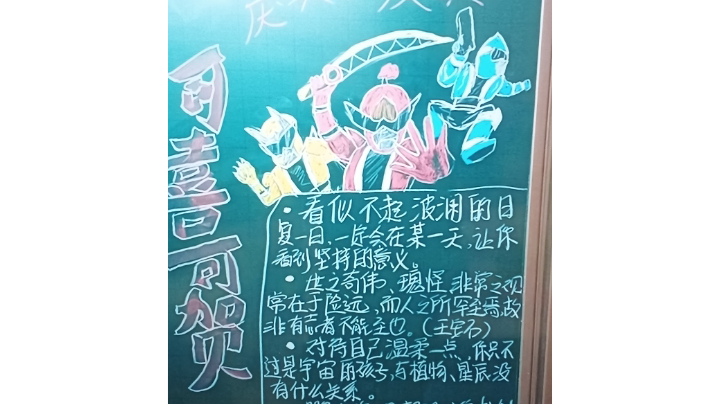 可喜可贺
·看似不起波澜的日
复一日、一定会在某一天,让你
看到坚持的意义。
·世之奇伟、瑰怪、非常之观
常在于险远,而人之所罕至焉,故
非有志者不能至也。(王安石)
·对待自己温柔一点,你只不
过是宇宙的孩子,与植物、星辰没
有什么关系。